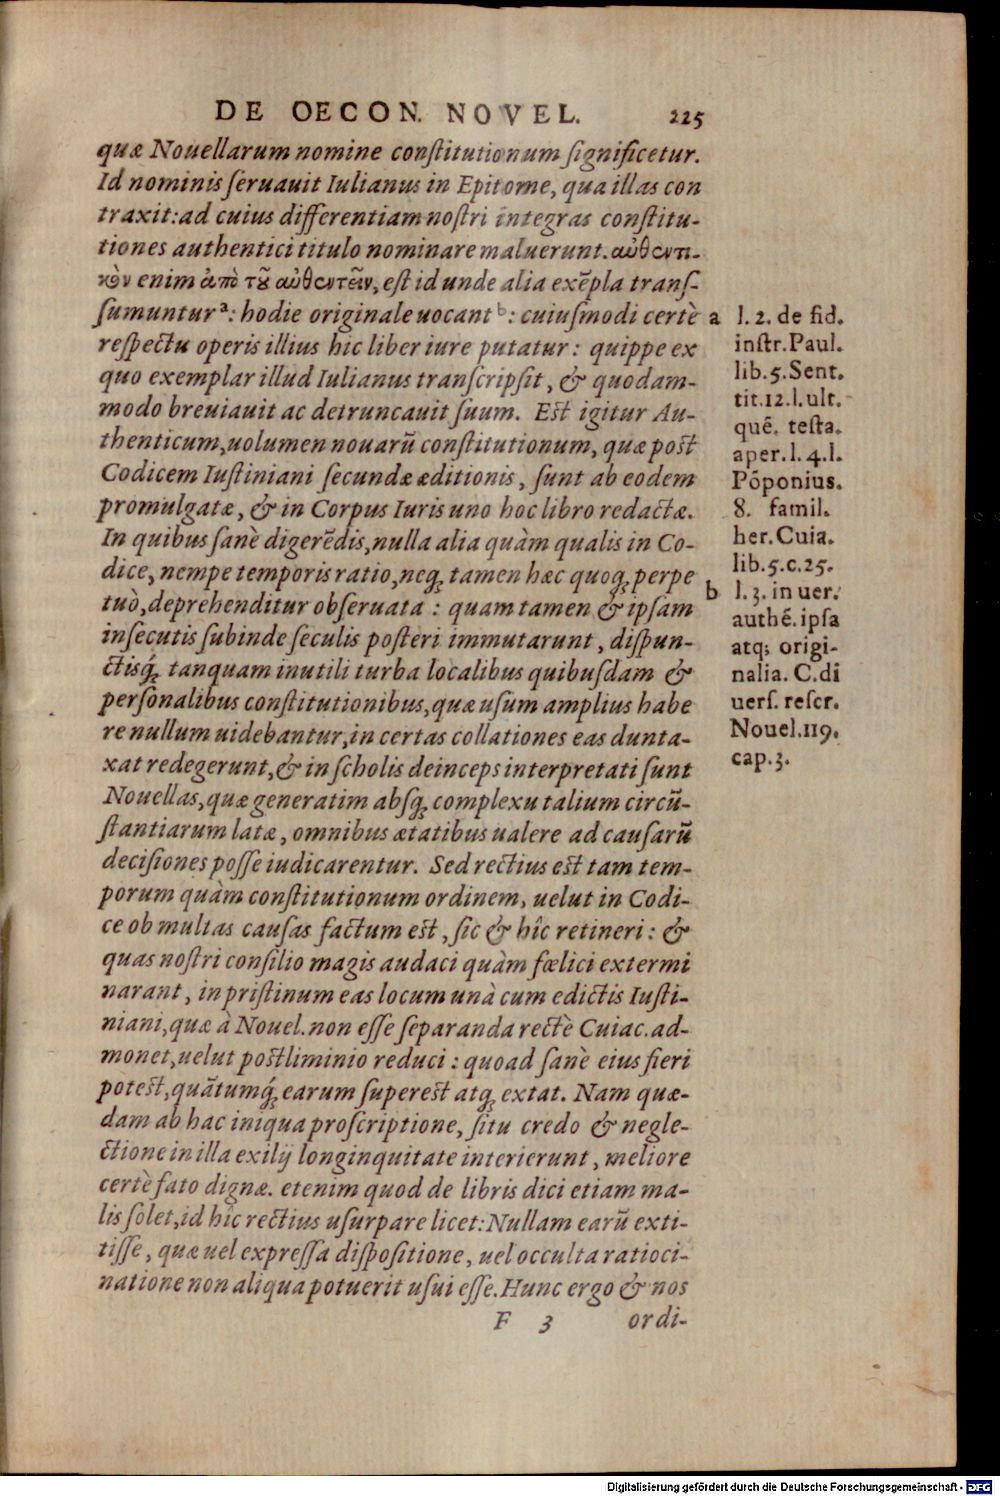 DE OECON. NOVEL. 225
quæ Nouellarum nomine conſtitutionum ſignificetur.
Id nominis ſeruauit Iulianus in Epitome, qua illas con
traxit: ad cuius differentiam noſtri integras conſtitu-
tiones authentici titulo nominare maluerunt. αὐθεντι-
κὸν enim ἀπὸ τȣ͂ αὐθεντεῖν, eſt id unde alia exẽpla tranſ-
ſumuntur ᵃ: hodie originale uocant ᵇ: cuiuſmodi certè
reſpectu operis illius hic liber iure putatur: quippe ex
quo exemplar illud Iulianus tranſcripſit, & quodam-
modo breuiauit ac detruncauit ſuum. Eſt igitur Au-
thenticum, uolumen nouarũ conſtitutionum, quæ poſt
Codicem Iuſtiniani ſecundæ æditionis, ſunt ab eodem
promulgatæ, & in Corpus Iuris uno hoc libro redactæ.
In quibus ſanè digerẽdis, nulla alia quàm qualis in Co-
dice, nempe temporis ratio, neq; tamen hæc quoq; perpe
tuò, deprehenditur obſeruata: quam tamen & ipſam
inſecutis ſubinde ſeculis poſteri immutarunt, diſpun-
ctisq́; tanquam inutili turba localibus quibuſdam &
perſonalibus conſtitutionibus, quæ uſum amplius habe
re nullum uidebantur, in certas collationes eas dunta-
xat redegerunt, & in ſcholis deinceps interpretati ſunt
Nouellas, quæ generatim abſq; complexu talium circũ-
ſtantiarum latæ, omnibus ætatibus ualere ad cauſarũ
deciſiones poſſe iudicarentur. Sed rectius eſt tam tem-
porum quàm conſtitutionum ordinem, uelut in Codi-
ce ob multas cauſas factum eſt, ſic & hîc retineri: &
quas noſtri conſilio magis audaci quàm fœlici extermi
narant, in priſtinum eas locum unà cum edictis Iuſti-
niani, quæ à Nouel. non eſſe ſeparanda rectè Cuiac. ad-
monet, uelut poſtliminio reduci: quoad ſanè eius fieri
poteſt, quãtumq́; earum ſupereſt atq; extat. Nam quæ-
dam ab hac iniqua proſcriptione, ſitu credo & negle-
ctione in illa exilij longinquitate interierunt, meliore
certè fato dignæ. etenim quod de libris dici etiam ma-
lis ſolet, id hîc rectius uſurpare licet: Nullam earũ exti-
tiſſe, quæ uel expreſſa diſpoſitione, uel occulta ratioci-
natione non aliqua potuerit uſui eſſe. Hunc ergo & nos
F 3 ordi-
a l. 2. de fid.
inſtr. Paul.
lib. 5. Sent.
tit. 12. l. ult.
quẽ. teſta.
aper. l. 4. l.
Põponius.
8. famil.
her. Cuia.
lib. 5. c. 25.
b l. 3. in uer.
authẽ. ipſa
atq; origi-
nalia. C. di
uerſ. reſcr.
Nouel. 119.
cap. 3.
Digitalisierung gefördert durch die Deutsche Forschungsgemeinschaft - DFG